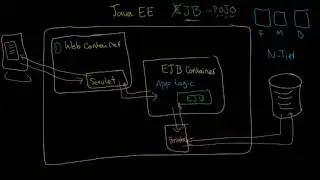 Java EE EJB - POJO
F M D
① Web Container
N-Tier
Servlet
EJB Container
App Logic
EJB